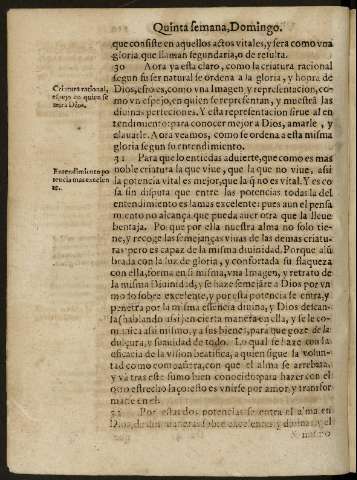 Quinta semana, Domingo.
que consiste en aquellos actos vitales, y será como vna
gloria que llaman segundaria, o de resulta.
30 Aora ya està claro, como la criatura racional
segun su ser natural se ordena a la gloria, y honra de
Dios, esto es, como vna Imagen y representacion, co-
mo vn espejo, en quien se representan, y muestra las
diuinas perfeciones. Y esta representacion sirue al en
tendimiento para conocer mejor a Dios, amarle, y
alauarle. Aora veamos, como se ordena a esta misma
gloria segun su entendimiento.
31 Para que lo entiēdas aduierte, que como es mas
noble criatura la que viue, que la que no viue, assi
la potencia vital es mejor, que la q̃ no es vital. Y es co
sa sin disputa que entre las potencias todas la del
entendimiento es la mas excelente: pues aun el pensa
miento no alcança que pueda auer otra que la lleue
bentaja. Porque por ella nuestra alma no solo tie-
ne, y recoge las semejanças viuas de las demas criatu
ras pero es capaz de la misma diuinidad. Porque alũ
brada con la luz de gloria, y confortada su flaqueza
con ella, forma en si misma, vna Imagen, y retrato de
la misma Diuinidad, y se haze semejāre a Dios por vn
modo sobre excelente, y por esta potencia se entra, y
penetra por la misma essencia diuina, y Dios descan-
sa (hablando assi) en cierta manera en ella, y se le co-
munica assi mismo, y a sus bienes, para que goze de la
dulçura, y suauidad de todo. Lo qual se haze con la
eficacia de la vision beatifica, a quien sigue la volun-
tad como compañera, con que el alma se arrebata,
y va tras este sumo bien conocido para hazer con el
que estrecho laço es vnirse por amor, y transfor
marse en el.
32 Por estas dos potencias se entra el alma en
Dios, de dos maneras sobre excelentes y diuinas, y el
Criatura racional,
espejo en quien se
mira Dios.
Entendimiento po
tencia mas excelen
te.